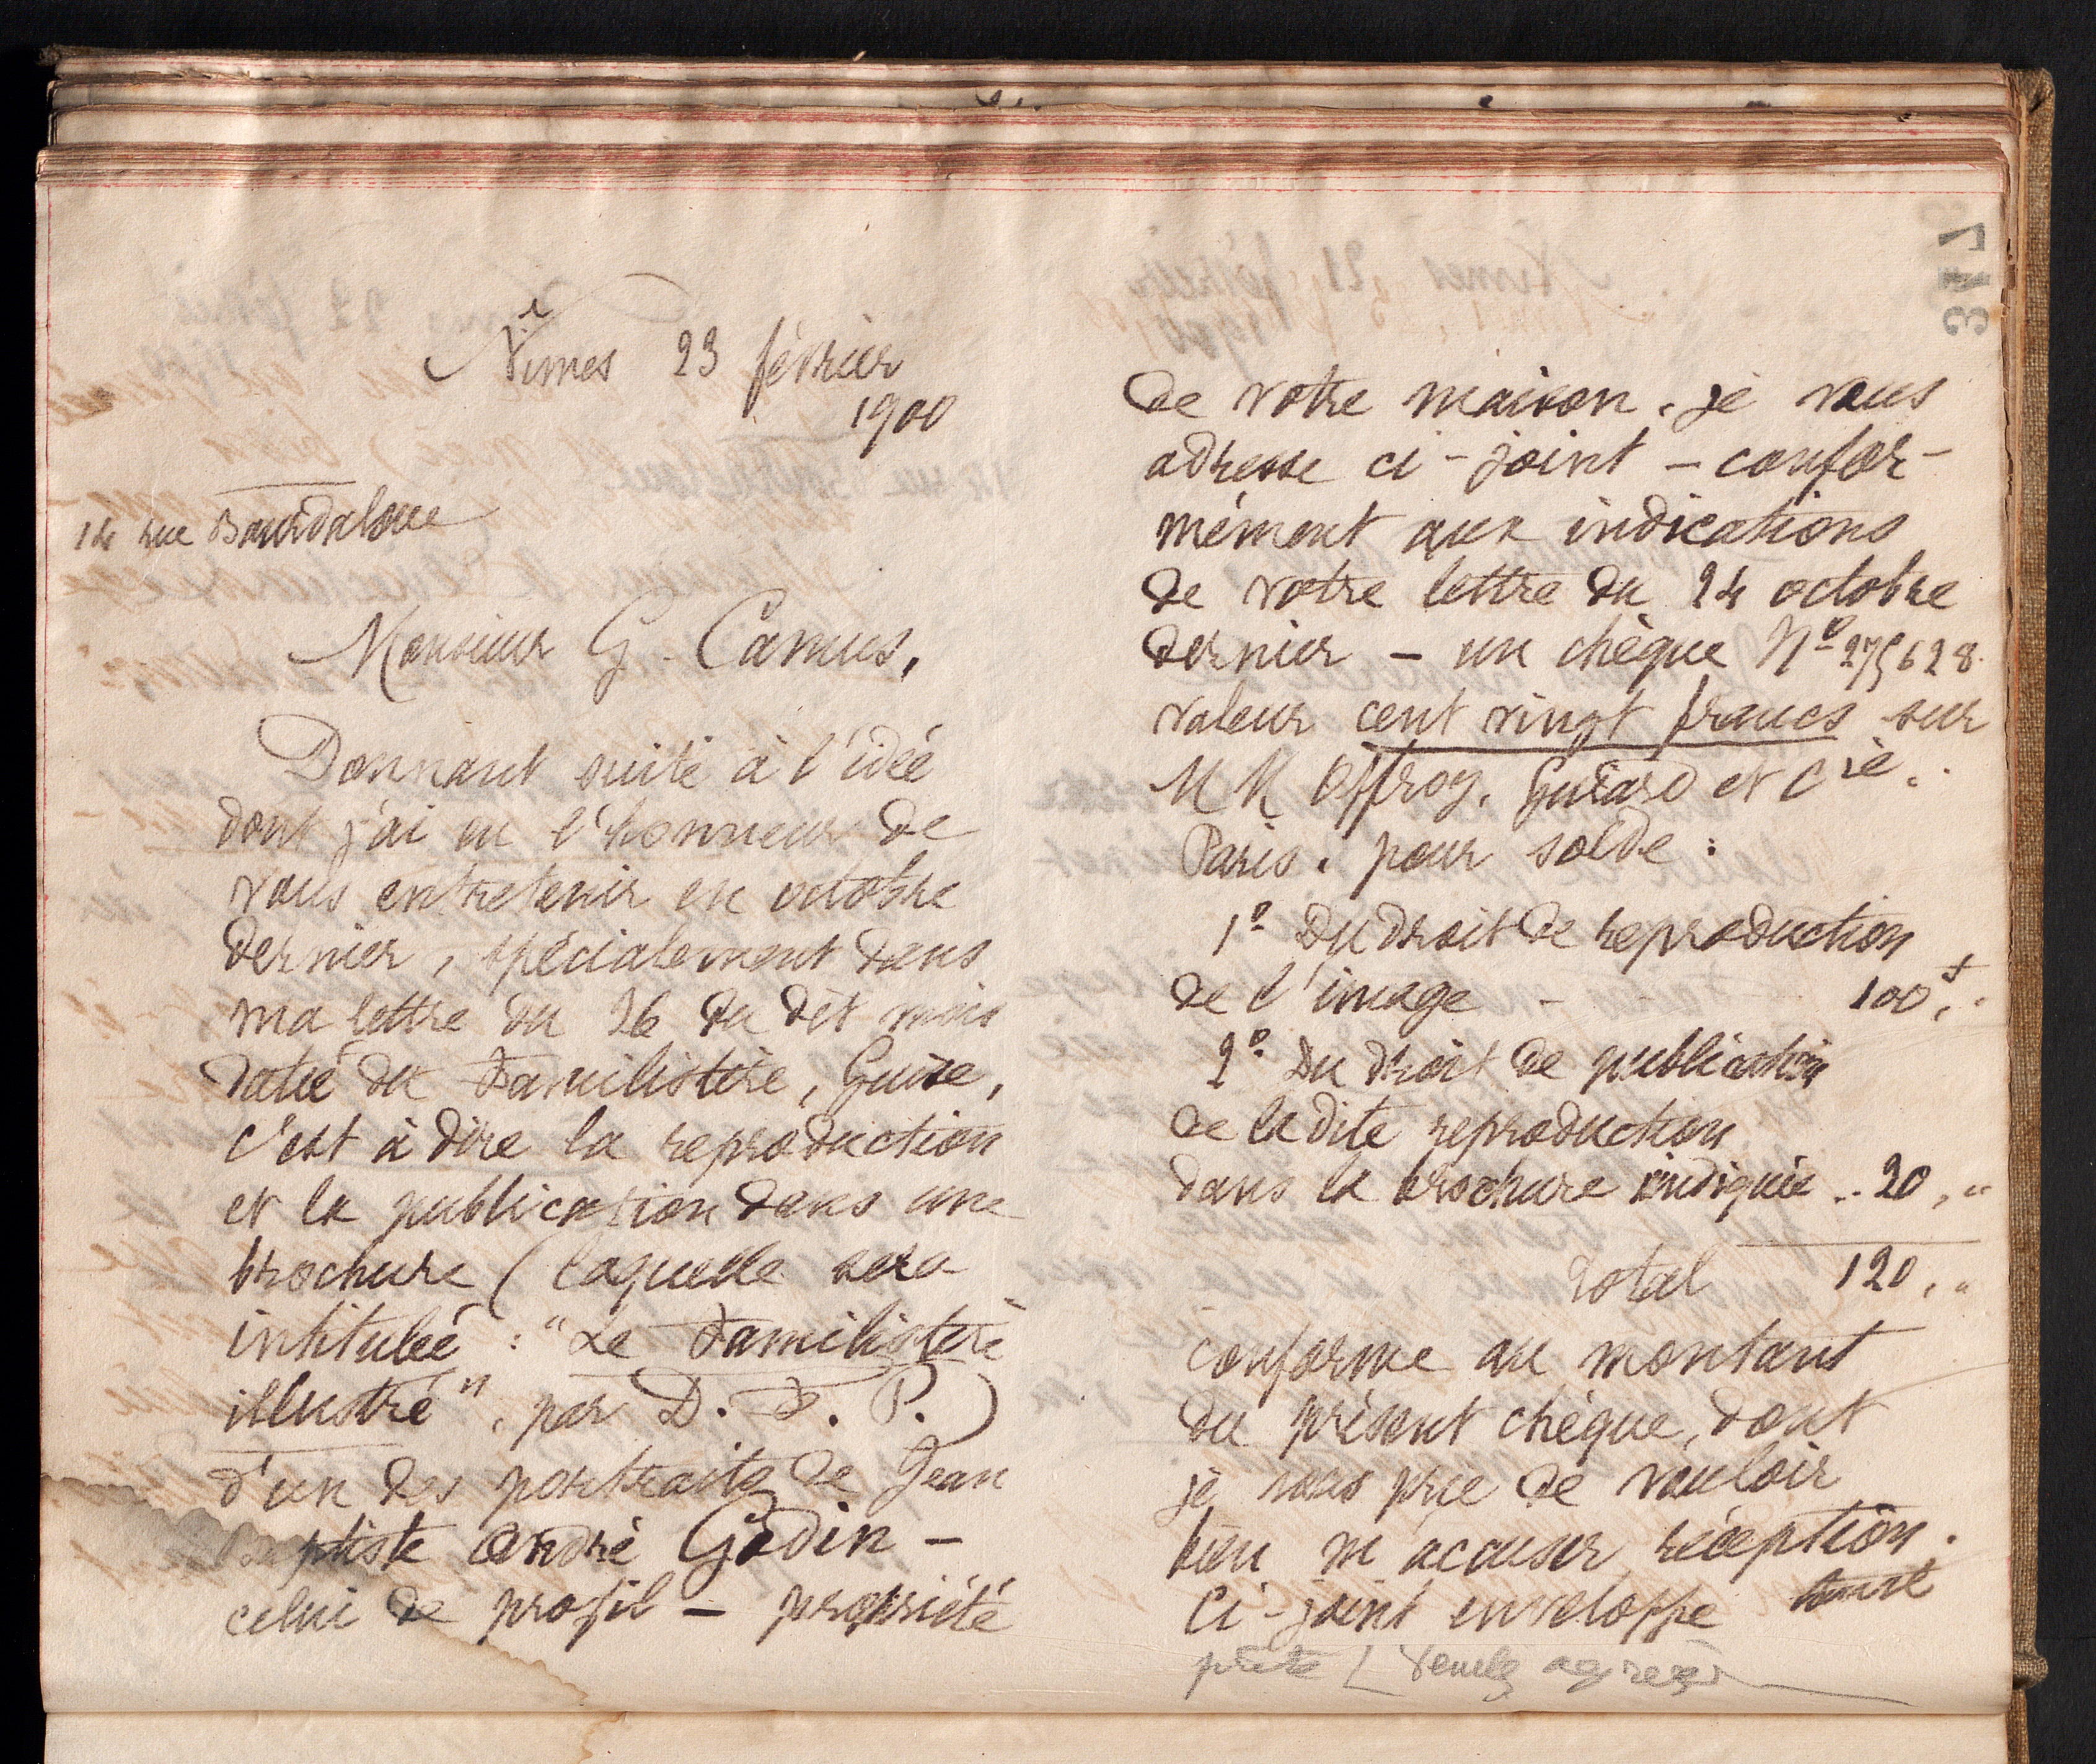 Nîmes 23 février
1900
14 rue Bourdaloue
Monsieur G. Camus,
Donnant suite à l'idée
dont j'ai eu l'honneur de
vous entretenir en octobre
dernier, spécialement dans
ma lettre du 26 du dit mois
daté du Familistère, Guise,
c'est à dire la reproduction
et la publication dans une
brochure (laquelle sera
intitulée : "Le Familistère
illustré", par D. F. P.)
d'un des portraits de Jean
Baptiste André Godin -
celui de profil - propriété
317
de votre maison, je vous
adresse ci-joint - confor-
mément aux indications
de votre lettre du 24 octobre
dernier - un chèque No 275628
valeur cent vingt francs sur
MM Offroy, Guiard et Cie.
Paris. pour solde :
1o Du droit de reproduction
de l'image - 100f,"
2o Du droit de publication
de la dite reproduction
dans la brochure indiquée .. 20,"
Total 120,"
conforme au montant
du présent chèque, dont
je vous prie de vouloir
bien m'acuser réception.
Ci-joint enveloppe toute
prête / Veuillez agréer